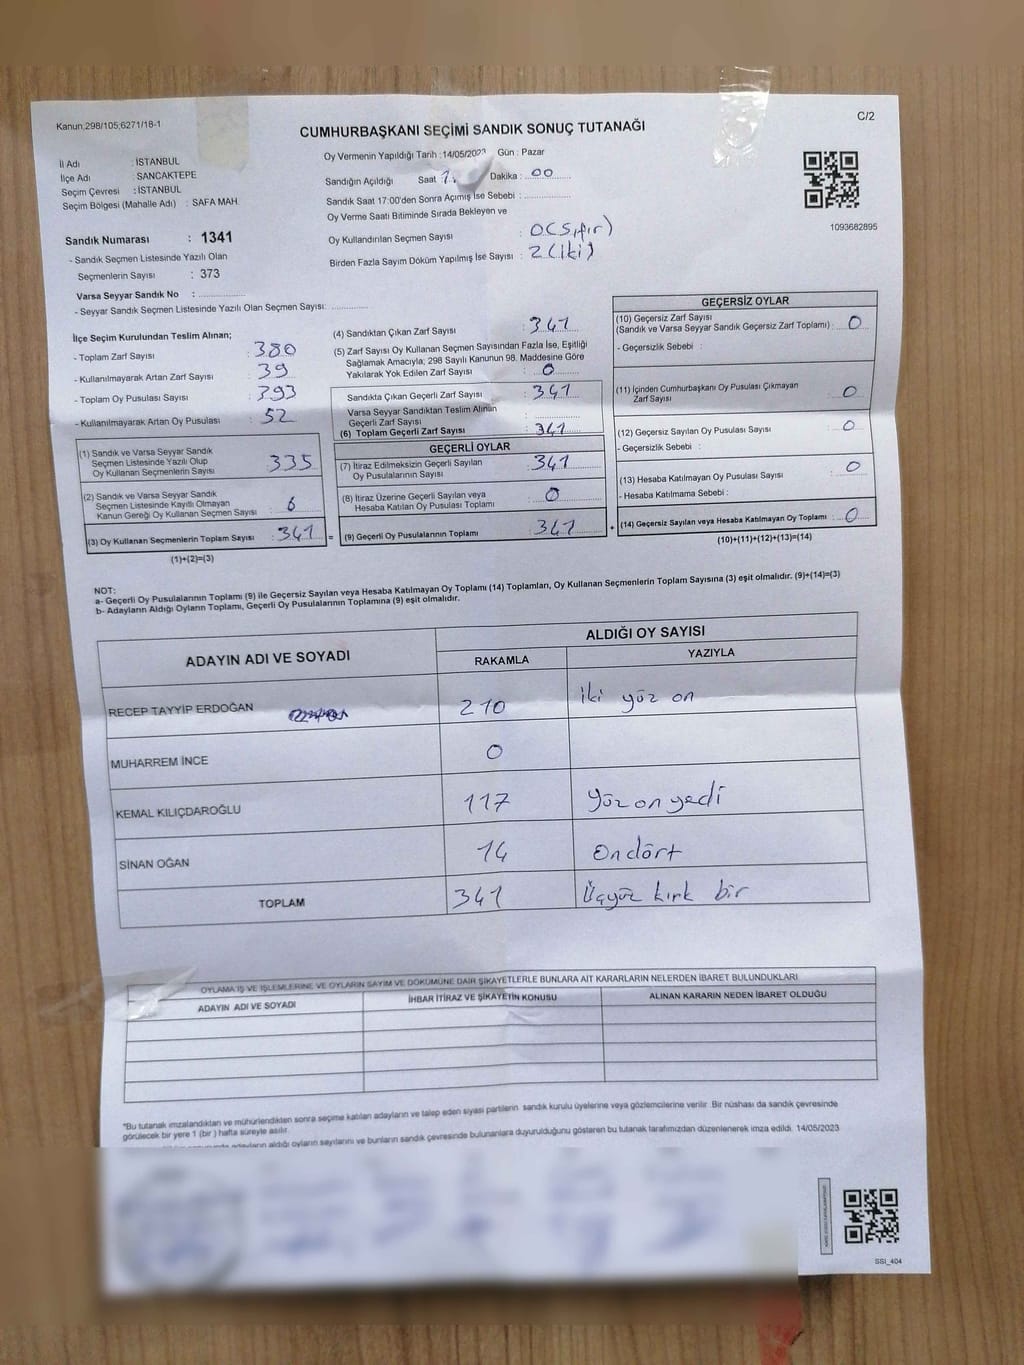 Kanun;298/105;6271/18-1
C/2
CUMHURBAŞKANI SEÇİMİ SANDIK SONUÇ TUTANAĞI
İl Adı : İSTANBUL
İlçe Adı : SANCAKTEPE
Seçim Çevresi : İSTANBUL
Seçim Bölgesi (Mahalle Adı) : SAFA MAH.
Sandık Numarası : 1341
- Sandık Seçmen Listesinde Yazılı Olan
Seçmenlerin Sayısı : 373
Varsa Seyyar Sandık No :
- Seyyar Sandık Seçmen Listesinde Yazılı Olan Seçmen Sayısı:
Oy Vermenin Yapıldığı Tarih :14/05/2023 Gün : Pazar
Sandığın Açıldığı Saat Dakika : 00
Sandık Saat 17:00'den Sonra Açımış İse Sebebi :
Oy Verme Saati Bitiminde Sırada Bekleyen ve
Oy Kullandırılan Seçmen Sayısı : 0(Sıfır)
Birden Fazla Sayım Döküm Yapılmış İse Sayısı : 2(iki)
1093682895
İlçe Seçim Kurulundan Teslim Alınan;
- Toplam Zarf Sayısı : 380
- Kullanılmayarak Artan Zarf Sayısı : 39
- Toplam Oy Pusulası Sayısı : 393
- Kullanılmayarak Artan Oy Pusulası : 52
(1) Sandık ve Varsa Seyyar Sandık
Seçmen Listesinde Yazılı Olup
Oy Kullanan Seçmenlerin Sayısı : 335
(2) Sandık ve Varsa Seyyar Sandık
Seçmen Listesinde Kayıtlı Olmayan
Kanun Gereği Oy Kullanan Seçmen Sayısı : 6
(3) Oy Kullanan Seçmenlerin Toplam Sayısı : 341
(1)+(2)=(3)
(4) Sandıktan Çıkan Zarf Sayısı : 341
(5) Zarf Sayısı Oy Kullanan Seçmen Sayısından Fazla İse, Eşitliği
Sağlamak Amacıyla; 298 Sayılı Kanunun 98. Maddesine Göre
Yakılarak Yok Edilen Zarf Sayısı : 0
Sandıkta Çıkan Geçerli Zarf Sayısı : 341
Varsa Seyyar Sandıktan Teslim Alınan
Geçerli Zarf Sayısı :
(6) Toplam Geçerli Zarf Sayısı : 341
GEÇERLİ OYLAR
(7) İtiraz Edilmeksizin Geçerli Sayılan
Oy Pusulalarının Sayısı : 341
(8) İtiraz Üzerine Geçerli Sayılan veya
Hesaba Katılan Oy Pusulası Toplamı : 0
= (9) Geçerli Oy Pusulalarının Toplamı : 341
GEÇERSİZ OYLAR
(10) Geçersiz Zarf Sayısı
(Sandık ve Varsa Seyyar Sandık Geçersiz Zarf Toplamı) : 0
- Geçersizlik Sebebi :
(11) İçinden Cumhurbaşkanı Oy Pusulası Çıkmayan
Zarf Sayısı : 0
(12) Geçersiz Sayılan Oy Pusulası Sayısı : 0
- Geçersizlik Sebebi :
(13) Hesaba Katılmayan Oy Pusulası Sayısı : 0
- Hesaba Katılmama Sebebi :
+ (14) Geçersiz Sayılan veya Hesaba Katılmayan Oy Toplamı : 0
(10)+(11)+(12)+(13)=(14)
NOT:
a- Geçerli Oy Pusulalarının Toplamı (9) ile Geçersiz Sayılan veya Hesaba Katılmayan Oy Toplamı (14) Toplamları, Oy Kullanan Seçmenlerin Toplam Sayısına (3) eşit olmalıdır. (9)+(14)=(3)
b- Adayların Aldığı Oyların Toplamı, Geçerli Oy Pusulalarının Toplamına (9) eşit olmalıdır.
ADAYIN ADI VE SOYADI
ALDIĞI OY SAYISI
RAKAMLA YAZIYLA
RECEP TAYYİP ERDOĞAN 210 iki yüz on
MUHARREM İNCE 0
KEMAL KILIÇDAROĞLU 117 Yüz on yedi
SİNAN OĞAN 14 Ondört
TOPLAM 341 Üçyüz kırk bir
OYLAMA İŞ VE İŞLEMLERİNE VE OYLARIN SAYIM VE DÖKÜMÜNE DAİR ŞİKAYETLERLE BUNLARA AİT KARARLARIN NELERDEN İBARET BULUNDUKLARI
ADAYIN ADI VE SOYADI İHBAR İTİRAZ VE ŞİKAYETİN KONUSU ALINAN KARARIN NEDEN İBARET OLDUĞU
*Bu tutanak imzalandıktan ve mühürlendikten sonra seçime katılan adayların ve talep eden siyasi partilerin sandık kurulu üyelerine veya gözlemcilerine verilir. Bir nüshası da sandık çevresinde
görülecek bir yere 1 (bir) hafta süreyle asılır.
adayların aldığı oyların sayılarını ve bunların sandık çevresinde bulunanlara duyurulduğunu gösteren bu tutanak tarafımızdan düzenlenerek imza edildi. 14/05/2023
SSI_404